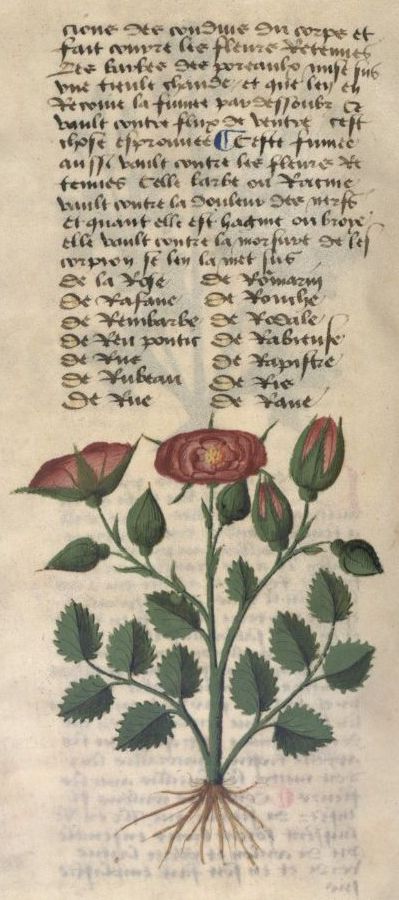 cions des conduis du corps et
fait contre les fleurs Retenues
Les barbes des poreaulx mise sus
vne tieule chaude et que len en
Recoiue la fumee par dessoubz Ce
vault contre flux de ventre cest
chose esprouuee ¶ Ceste fumee
aussi vault contre les fleurs Re
tenues Celle larbe ou Racine
vault contre la douleur des nerfs
et quant elle est hachie ou broye
elle vault contre la morsure de les
corpion se len la met sus
De la Rose De Romarin
De Rafane De Ronche
De Reubarbe De Rodale
De Reu pontic De Rabieuse
De Rue De Rapistre
De Rubeau De Ris
De Rue De Raue